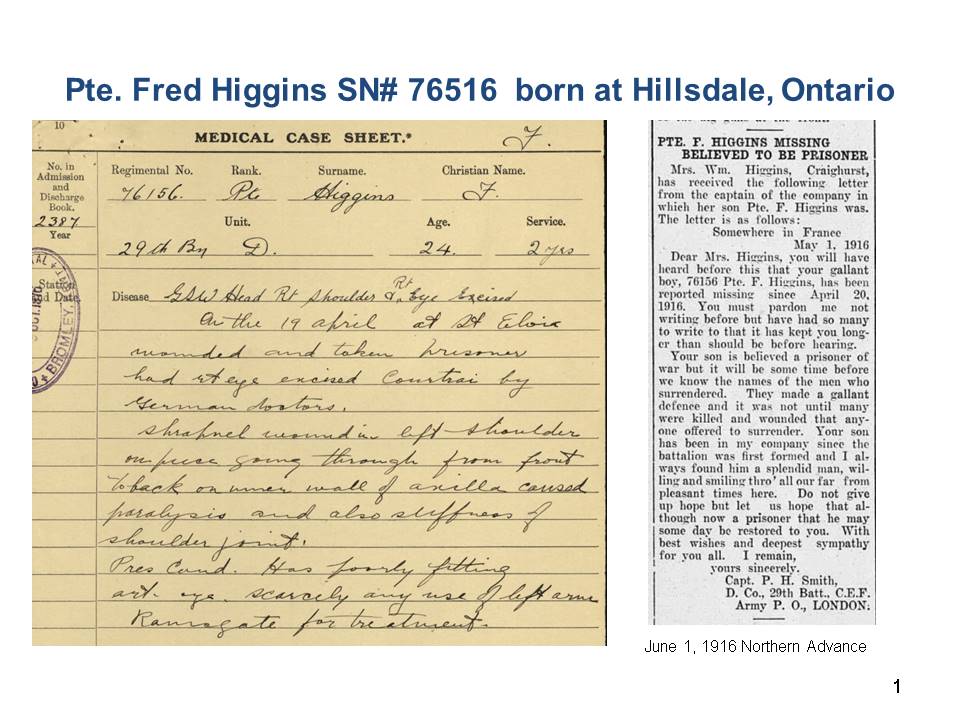 Pte. Fred Higgins SN# 76516 born at Hillsdale, Ontario
10
MEDICAL CASE SHEET.*
F.
No. in
Admission
and
Discharge
Book.
2387
Year
Regimental No. Rank. Surname. Christian Name.
76156. Pte Higgins F.
Unit. Age. Service.
29th Bn D. 24. 2 yrs
Station
and Date.
BROMLEY
Disease GSW Head Rt Shoulder & Rt Eye Excised
On the 19 april at St Eloix
wounded and taken prisoner
had rt eye excised Courtrai by
German doctors.
Shrapnel wound in left shoulder
going through from front
to back on inner wall of axilla caused
paralysis and also stiffness of
shoulder joint.
Pres Cond. Has poorly fitting
art. eye. scarcely any use of left arm
Ramsgate for treatment.
PTE. F. HIGGINS MISSING
BELIEVED TO BE PRISONER
Mrs. Wm. Higgins, Craighurst,
has received the following letter
from the captain of the company in
which her son Pte. F. Higgins was.
The letter is as follows:
Somewhere in France
May 1, 1916
Dear Mrs. Higgins, you will have
heard before this that your gallant
boy, 76156 Pte. F. Higgins, has been
reported missing since April 20,
1916. You must pardon me not
writing before but have had so many
to write to that it has kept you long-
er than should be before hearing.
Your son is believed a prisoner of
war but it will be some time before
we know the names of the men who
surrendered. They made a gallant
defence and it was not until many
were killed and wounded that any-
one offered to surrender. Your son
has been in my company since the
battalion was first formed and I al-
ways found him a splendid man, wil-
ling and smiling thro' all our far from
pleasant times here. Do not give
up hope but let us hope that al-
though now a prisoner that he may
some day be restored to you. With
best wishes and deepest sympathy
for you all. I remain,
yours sincerely.
Capt. P. H. Smith,
D. Co., 29th Batt., C.E.F.
Army P. O., LONDON.
June 1, 1916 Northern Advance
1